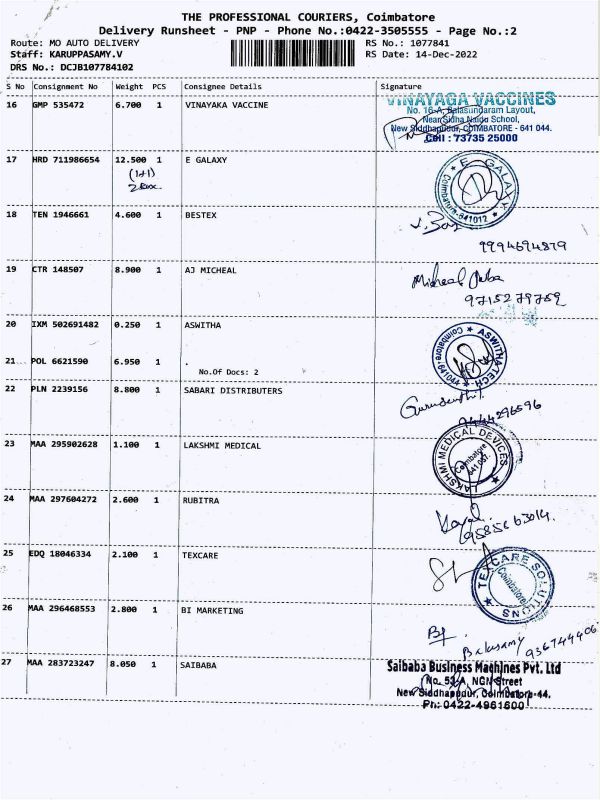 THE PROFESSIONAL COURIERS, Coimbatore
Delivery Runsheet - PNP - Phone No.:0422-3505555 - Page No.:2
Route: MO AUTO DELIVERY
RS No.: 1077841
Staff: KARUPPASAMY.V
RS Date: 14-Dec-2022
DRS No.: DCJB107784102
S No Consignment No Weight PCS Consignee Details Signature
16 GMP 535472 6.700 1 VINAYAKA VACCINE
VINAYAGA VACCINES
No. 16-A, Balasundaram Layout,
Near Sidha Naidu School,
New Siddhapudur, COIMBATORE - 641 044.
Cell : 73735 25000
17 HRD 711986654 12.500 1 E GALAXY
(1+1)
2 Box
E GALAXY
Coimbatore-641012
18 TEN 1946661 4.600 1 BESTEX
9994694879
19 CTR 148507 8.900 1 AJ MICHEAL
Micheal
9715279759
20 IXM 502691482 0.250 1 ASWITHA
ASWITHA TECH
Coimbatore-641 044
21 POL 6621590 6.950 1 .
No.Of Docs: 2
22 PLN 2239156 8.800 1 SABARI DISTRIBUTERS
9444296596
23 MAA 295902628 1.100 1 LAKSHMI MEDICAL
LAKSHMI MEDICAL DEVICES
Coimbatore
24 MAA 297604272 2.600 1 RUBITRA
25 EDQ 18046334 2.100 1 TEXCARE
TEXCARE SOLUTIONS
Coimbatore
26 MAA 296468553 2.800 1 BI MARKETING
Balusamy
27 MAA 283723247 8.050 1 SAIBABA
Saibaba Business Machines Pvt. Ltd
No. 53-A, NGN Street
New Siddhapudur, Coimbatore-44.
Ph: 0422-4961600